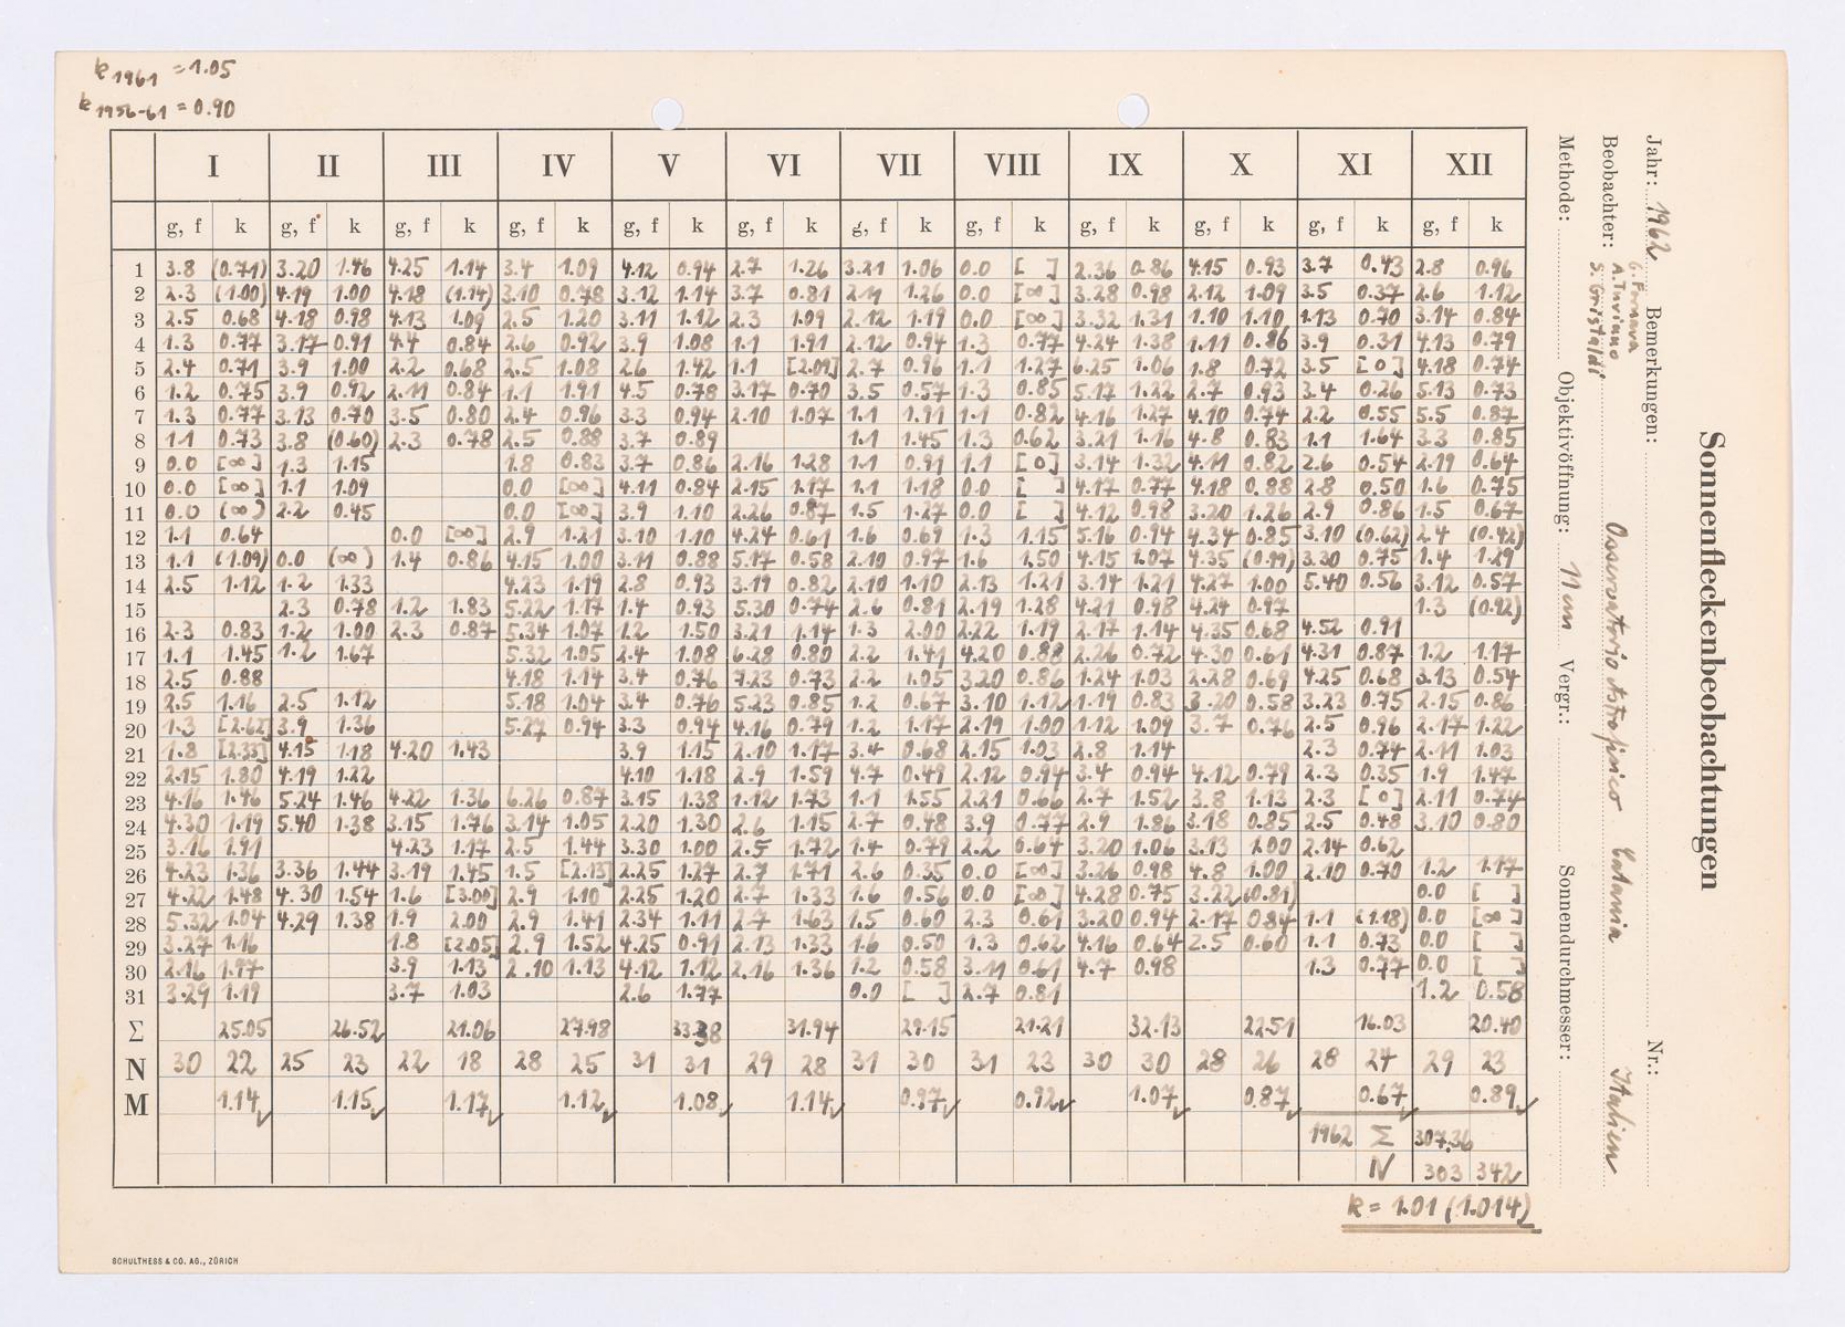 k 1961 = 1.05
k 1956-61 = 0.90
I II III IV V VI VII VIII IX X XI XII
g, f k g, f k g, f k g, f k g, f k g, f k g, f k g, f k g, f k g, f k g, f k g, f k
1 3.8 (0.71) 3.20 1.46 4.25 1.14 3.4 1.09 4.12 0.94 2.7 1.26 3.21 1.06 0.0 [ ] 2.36 0.86 4.15 0.93 3.7 0.43 2.8 0.96
2 2.3 (1.00) 4.19 1.00 4.18 (1.14) 3.10 0.78 3.12 1.14 3.7 0.81 2.11 1.26 0.0 [∞] 3.28 0.98 2.12 1.09 3.5 0.37 2.6 1.12
3 2.5 0.68 4.18 0.98 4.13 1.09 2.5 1.20 3.11 1.12 2.3 1.09 2.12 1.19 0.0 [∞] 3.32 1.31 1.10 1.10 1.13 0.70 3.14 0.84
4 1.3 0.77 3.17 0.91 4.4 0.84 2.6 0.92 3.9 1.08 1.1 1.91 2.12 0.94 1.3 0.77 4.24 1.38 1.11 0.86 3.9 0.31 4.13 0.79
5 2.4 0.71 3.9 1.00 2.2 0.68 2.5 1.08 2.6 1.42 1.1 [2.09] 2.7 0.96 1.1 1.27 6.25 1.06 1.8 0.72 3.5 [0] 4.18 0.74
6 1.2 0.75 3.9 0.92 2.11 0.84 1.1 1.91 4.5 0.78 3.17 0.70 3.5 0.57 1.3 0.85 5.17 1.22 2.7 0.93 3.4 0.26 5.13 0.73
7 1.3 0.77 3.13 0.70 3.5 0.80 2.4 0.96 3.3 0.94 2.10 1.07 1.1 1.91 1.1 0.82 4.16 1.27 4.10 0.74 2.2 0.55 5.5 0.87
8 1.1 0.73 3.8 (0.60) 2.3 0.78 2.5 0.88 3.7 0.89 1.1 1.45 1.3 0.62 3.21 1.16 4.8 0.83 1.1 1.64 3.3 0.85
9 0.0 [∞] 1.3 1.15 1.8 0.83 3.7 0.86 2.16 1.28 1.1 0.91 1.1 [0] 3.14 1.32 4.11 0.82 2.6 0.54 2.19 0.64
10 0.0 [∞] 1.1 1.09 0.0 [∞] 4.11 0.84 2.15 1.17 1.1 1.18 0.0 [ ] 4.17 0.77 4.18 0.88 2.8 0.50 1.6 0.75
11 0.0 (∞) 2.2 0.45 0.0 [∞] 3.9 1.10 2.26 0.87 1.5 1.27 0.0 [ ] 4.12 0.98 3.20 1.26 2.9 0.86 1.5 0.67
12 1.1 0.64 0.0 [∞] 2.9 1.21 3.10 1.10 4.24 0.61 1.6 0.69 1.3 1.15 5.16 0.94 4.34 0.85 3.10 (0.62) 2.4 (0.42)
13 1.1 (1.09) 0.0 (∞) 1.4 0.86 4.15 1.00 3.11 0.88 5.17 0.58 2.10 0.97 1.6 1.50 4.15 1.07 4.35 (0.99) 3.30 0.75 1.4 1.29
14 2.5 1.12 1.2 1.33 4.23 1.19 2.8 0.93 3.19 0.82 2.10 1.10 2.13 1.21 3.14 1.21 4.27 1.00 5.40 0.56 3.12 0.57
15 2.3 0.78 1.2 1.83 5.22 1.17 1.4 0.93 5.30 0.74 2.6 0.81 2.19 1.28 4.21 0.98 4.24 0.97 1.3 (0.92)
16 2.3 0.83 1.2 1.00 2.3 0.87 5.34 1.07 1.2 1.50 3.21 1.14 1.3 2.00 2.22 1.19 2.17 1.14 4.35 0.68 4.52 0.91
17 1.1 1.45 1.2 1.67 5.32 1.05 2.4 1.08 6.28 0.80 2.2 1.41 4.20 0.88 2.26 0.72 4.30 0.61 4.31 0.87 1.2 1.17
18 2.5 0.88 4.18 1.14 3.4 0.76 7.23 0.73 2.2 1.05 3.20 0.86 1.24 1.03 2.28 0.69 4.25 0.68 3.13 0.54
19 2.5 1.16 2.5 1.12 5.18 1.04 3.4 0.76 5.23 0.85 1.2 0.67 3.10 1.12 1.19 0.83 3.20 0.58 3.23 0.75 2.15 0.86
20 1.3 [2.62] 3.9 1.36 5.27 0.94 3.3 0.94 4.16 0.79 1.2 1.17 2.19 1.00 1.12 1.09 3.7 0.76 2.5 0.96 2.17 1.22
21 1.8 [2.33] 4.15 1.18 4.20 1.43 3.9 1.15 2.10 1.17 3.4 0.68 2.15 1.03 2.8 1.14 2.3 0.74 2.11 1.03
22 2.15 1.80 4.19 1.22 4.10 1.18 2.9 1.59 4.7 0.49 2.12 0.94 3.4 0.94 4.12 0.79 2.3 0.35 1.9 1.47
23 4.16 1.46 5.24 1.46 4.22 1.36 6.26 0.87 3.15 1.38 1.12 1.73 1.1 1.55 2.21 0.66 2.7 1.52 3.8 1.13 2.3 [0] 2.11 0.74
24 4.30 1.19 5.40 1.38 3.15 1.76 3.14 1.05 2.20 1.30 2.6 1.15 2.7 0.48 3.9 0.77 2.9 1.86 3.18 0.85 2.5 0.48 3.10 0.80
25 3.16 1.91 4.23 1.17 2.5 1.44 3.30 1.00 2.5 1.72 1.4 0.79 2.2 0.64 3.20 1.06 3.13 1.00 2.14 0.62
26 4.23 1.36 3.36 1.44 3.19 1.45 1.5 [2.13] 2.25 1.27 2.7 1.71 2.6 0.35 0.0 [∞] 3.26 0.98 4.8 1.00 2.10 0.70 1.2 1.17
27 4.22 1.48 4.30 1.54 1.6 [3.00] 2.9 1.10 2.25 1.20 2.7 1.33 1.6 0.56 0.0 [∞] 4.28 0.75 3.22 (0.81) 0.0 [ ]
28 5.32 1.04 4.29 1.38 1.9 2.00 2.9 1.41 2.34 1.11 2.7 1.63 1.5 0.60 2.3 0.61 3.20 0.94 2.17 0.84 1.1 (1.18) 0.0 [∞]
29 3.27 1.16 1.8 [2.05] 2.9 1.52 4.25 0.91 2.13 1.33 1.6 0.50 1.3 0.62 4.16 0.64 2.5 0.60 1.1 0.73 0.0 [ ]
30 2.16 1.97 3.9 1.13 2.10 1.13 4.12 1.12 2.16 1.36 1.2 0.58 3.11 0.61 4.7 0.98 1.3 0.77 0.0 [ ]
31 3.29 1.19 3.7 1.03 2.6 1.77 0.0 [ ] 2.7 0.81 1.2 0.58
Σ 25.05 26.52 21.06 27.98 33.38 31.94 29.15 21.21 32.13 22.51 16.03 20.40
N 30 22 25 23 22 18 28 25 31 31 29 28 31 30 31 23 30 30 28 26 28 24 29 23
M 1.14 1.15 1.17 1.12 1.08 1.14 0.97 0.92 1.07 0.87 0.67 0.89
1962 Σ 307.36
N 303 342
k = 1.01 (1.014)
SCHULTHESS & CO. AG., ZÜRICH
Sonnenfleckenbeobachtungen
Jahr: 1962 Bemerkungen: Nr.:
G. Fornava
A. Tuvino
S. Cristaldi
Beobachter: Osservatorio Astrofisico Catania Italien
Methode: Objektivöffnung: 11 cm Vergr.: Sonnendurchmesser: